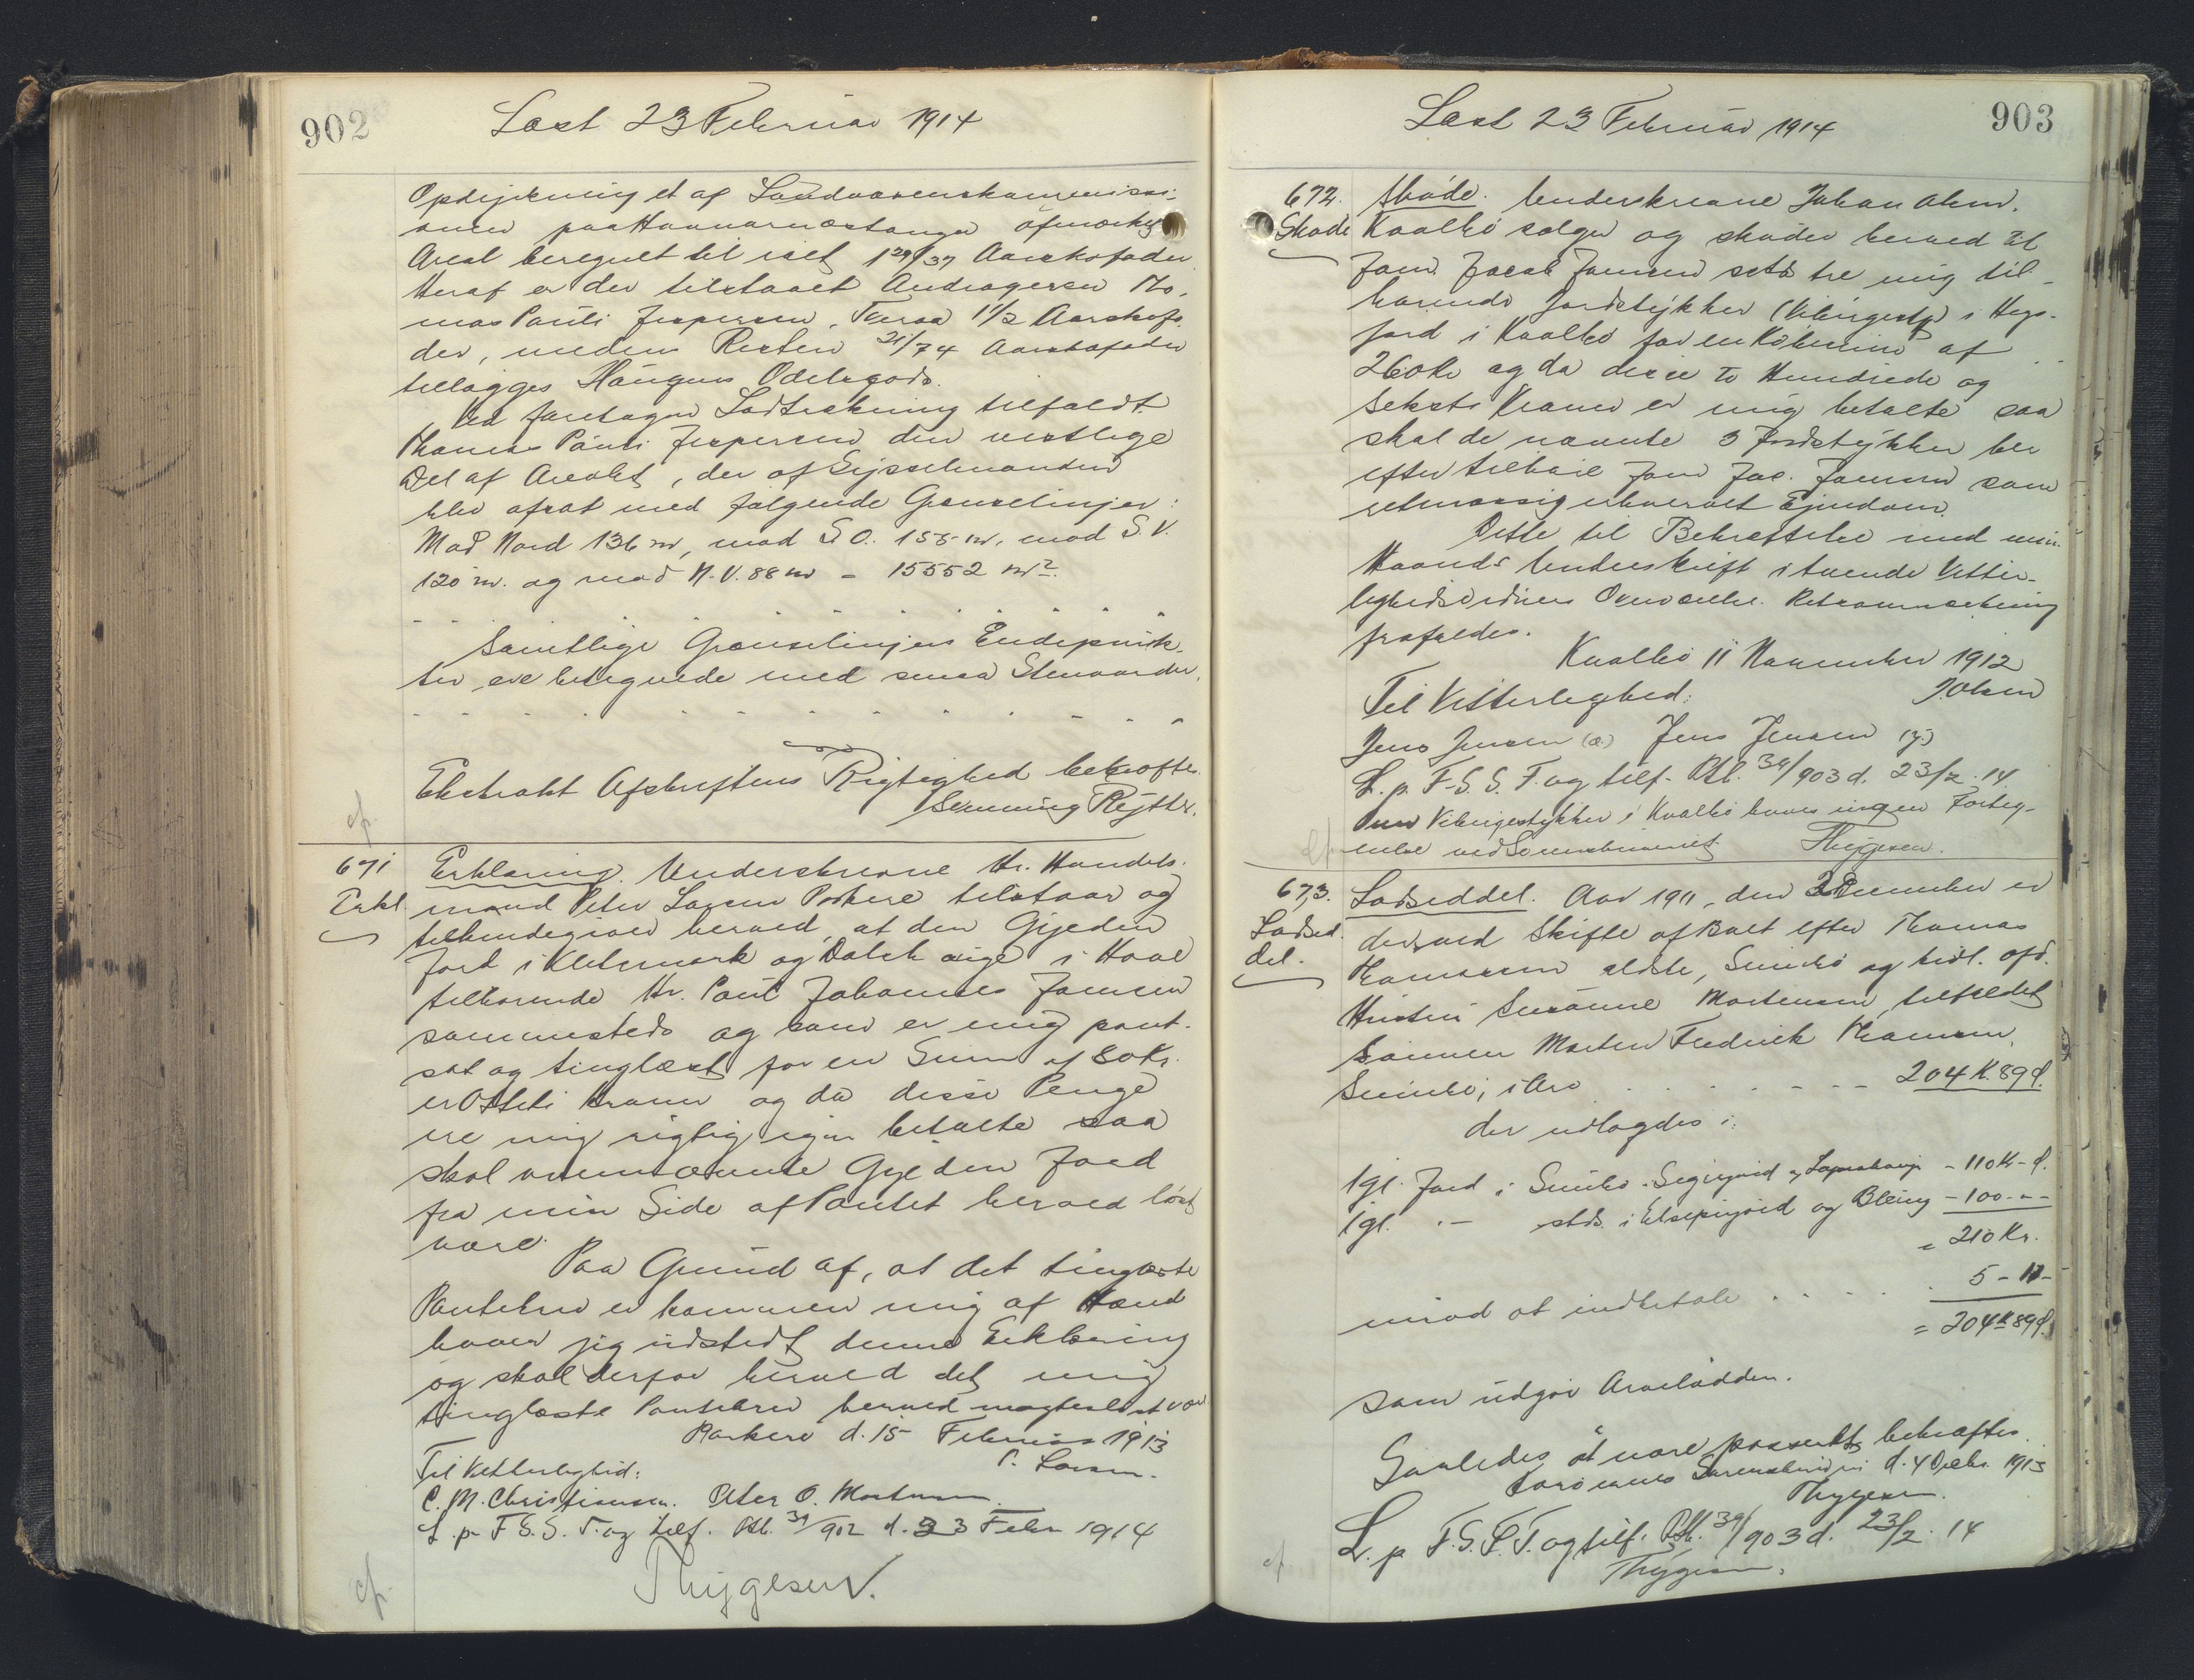 902
Læst 23 Februar 1914
Opdyrkning et af Landvæsenskommissi-
onen paa Havnarnæstanga afmærket
Areal beregnet til ialt 1 29/37 Aarskofoder
Heraf er der tilstaaet Andrageren Tho-
mas Pauli Jespersen, 1 1/2 Aarskofo
der, medens Resten 21/74 Aarskofoder
tillægges Odelsgods.
Ved foretagen Lodtrækning tilfaldt
Thomas Pauli Jespersen den vestlige
Del af Arealet, der af Sysselmanden
blev afsat med følgende Grænselinjer:
Mod Nord 136 m, mod S.O. 155 m, mod S.V.
120 m. og mod N.V. 88 m = 15552 m².
Samtlige Grænselinjers Endepunk-
ter ere betegnede med smaa Stenvarder.
Ekstrakt Afskriftens Rigtighed bekræftes
Flemming Rejtter.
cf.
671 Erklæring. Underskrevne Hr. Handels-
Erkl. mand Peter Larsen Porkere tilstaar og
tilkendegiver herved, at den Gyeden
Jord i Kletsmark og i Hove
tilhørende Hr. Poul Johannes Joensen
sammesteds og som er mig pant-
sat og tinglæst for en Sum af 80 Kr.
er Otteti Kroner og da disse Penge
ere mig rigtig igen betalte saa
skal ovennævnte Gyeden Jord
fra min Side af Pantet herved løst
være.
Paa Grund af, at det tinglæste
Pantebrev er kommen mig af Hænde
haver jeg udstedt denne Erklæring
og skal derfor herved det mig
tinglæste Pantebrev herved magtesløst være
Porkere d. 15 Februar 1913
Til Vitterlighed: P. Larsen.
C. M. Christiansen. Peter O. Mortensen.
L. p. F. S. S. T. og tilf. Rtl. 34/902 d. 23 Febr 1914
Thygesen.
cf.
903
Læst 23 Februar 1914
672. Skøde. Underskrevne Johan Olsen.
Skøde Kvalbø sælger og skøder herved til
Joen Jacob Joensen sstds tre mig til-
hørende Jordstykker (Vikingestk) i Hegs-
jord i Kvalbø for en Købesum af
260 Kr og da disse To Hundrede og
Seksti Kroner er mig betalte saa
skal de nævnte 3 Jordstykker her
efter tilhøre Joen Jac. Joensen som
retmæssig erhvervet Ejendom.
Dette til Bekræftelse med min
Haands Underskrift i tvende Vitter-
lighedsvidners Overværelse.
frafaldes.
Kvalbø 11 November 1912
Til Vitterlighed: J. Olsen
Jens Jensen (æ.) Jens Jensen (y.)
L. p. F. S. S. T. og tilf. Rtl. 34/903 d. 23/2. 14
Over Vikingestykker i Kvalbø haves ingen Forteg-
nelse ved Sorenskriveriet. Thygesen.
cf.
673. Lodseddel. Aar 1911, den 2 December er
Lodsed- der ved Skifte af Boet efter Thomas
del. Thomassen ældste, Sumbø og tidl. afd.
Hustru Susanne Mortensen, tilfaldet
Sønnen Morten Fredrik Thomsen,
Sumbø, i Arv . . . . . . 204 K. 89 Ø.
der udlagdes i:
1 gl. Jord i Sumbø. - 110 Kr - Ø.
1 gl. - stds. i og Bleing - 100 - " -
= 210 Kr.
imod at indbetale . . . . . 5 - 11 -
= 204 K 89 Ø.
som udgør Arvelodden.
Saaledes at være passeret bekræftes.
Færøernes Sorenskriveri d. 4 Decbr. 1913
Thygesen.
L. p. F. S. S. T. og tilf. Rtl. 34/903 d. 23/2. 14
Thygesen.
cf.